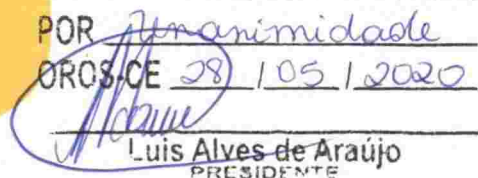 POR Unanimidade
OROS-CE 28 / 05 / 2020
Luis Alves de Araújo
PRESIDENTE